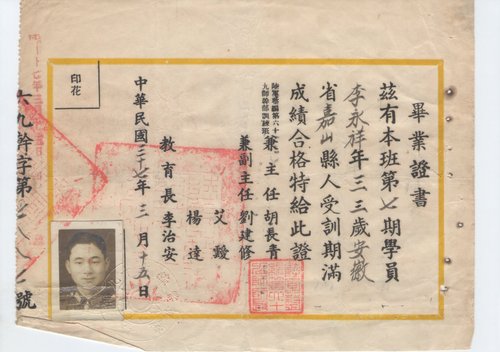 畢業證書
茲有本班第七期學員
李永祥年三三歲安徽
省嘉山縣人受訓期滿
成績合格特給此證
陸軍整編第六十
九師幹部訓練班
兼主任胡長青
兼副主任劉建修
艾靉
楊達
教育長李治安
中華民國三十七年三月十五日
印花
六九幹字第七八八七號